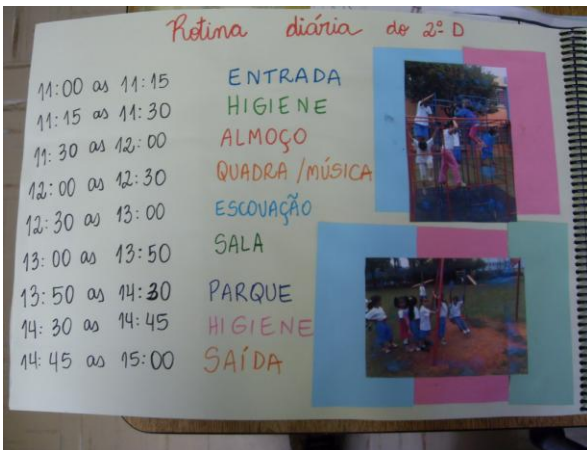 Rotina diária do 2º D
11:00 as 11:15 ENTRADA
11:15 as 11:30 HIGIENE
11:30 as 12:00 ALMOÇO
12:00 as 12:30 QUADRA/MÚSICA
12:30 as 13:00 ESCOVAÇÃO
13:00 as 13:50 SALA
13:50 as 14:30 PARQUE
14:30 as 14:45 HIGIENE
14:45 as 15:00 SAÍDA